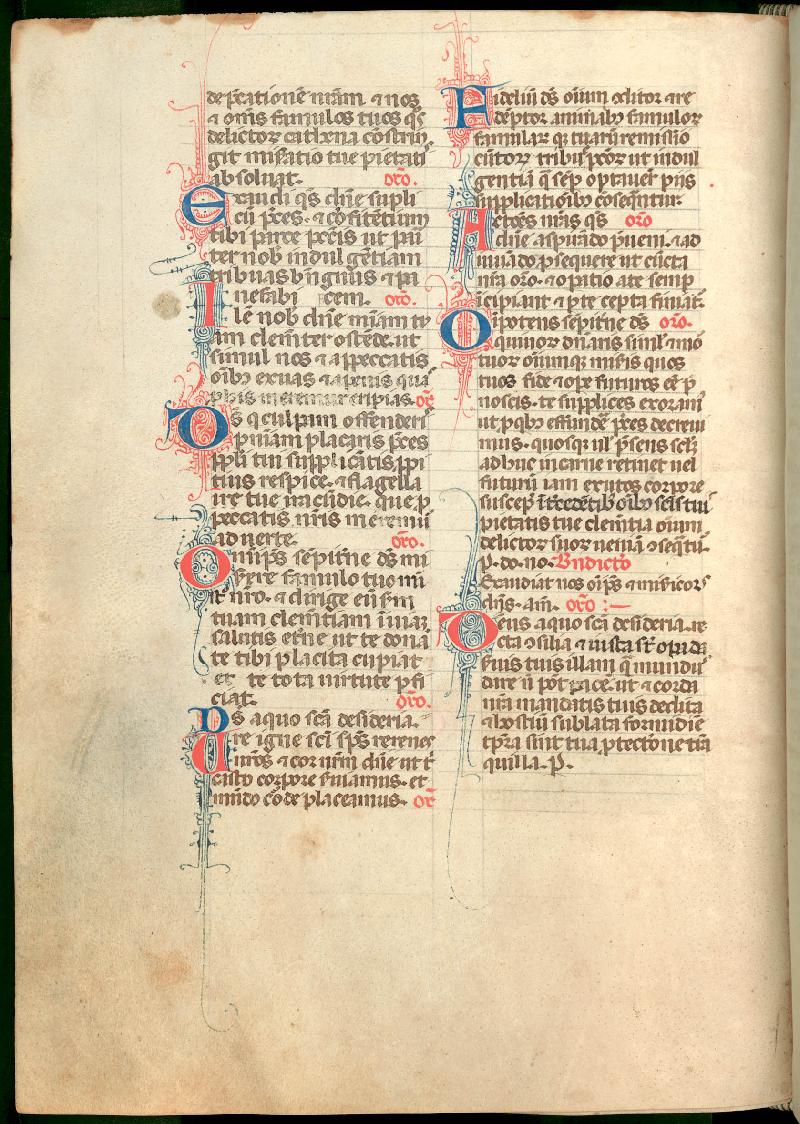 dep̃cationẽ nr̃am ⁊ nos
⁊ om̃s famulos tuos q̃s
delictoꝝ cathena cõstrin
git mis̃atio tue pietati
absoluat. or̃o.
Exaudi q̃s dñe supli
cũ p̃ces. ⁊ cõfitẽtium
tibi parce pcc̃is ut pari
ter nob̃ indulgẽtiam
tribuas b̃nignus ⁊ pa
Inefabi cem. or̃o.
lẽ nob̃ dñe mĩam tu
am clem̃ter ostẽde. ut
simul nos ⁊ a peccatis
oĩbꝰ exuas ⁊ a penis quas
p̃ his meremur eripias. or̃
Ds̃ q̃ culpa offenderis
p̃niam placaris p̃ces
ppl̃i tui supplicãtis ppi
tius respice. ⁊ flagella
ire tue iracũdie. que p̃
peccatis nr̃is meremur
aduerte. or̃o.
Omip̃s sẽpitr̃ne ds̃ mi
serere famulo tuo mi
nr̃o. ⁊ dirige eũ s̃m
tuam clem̃tiam ĩ uiaz
salutis et̃ne ut te donã
te tibi placita cupiat
et te tota uirtute p̃fi
ciat. or̃o.
Ds̃ a quo sc̃a desideria.
Ure igne sc̃i sp̃s renes
nr̃os ⁊ cor nr̃m dñe ut t̃
casto corpore s̃uiamus. et
mũdo cõde placeamus. or̃
Fidelium ds̃ oĩum cõditor ⁊ re
dẽptor animabꝰ famulorꝝ
famularꝝ q̃ tuarũ remissio
nem cũctorꝝ tribue pcc̃orꝝ ut indul
gentiã q̃ sẽp optauer̃ piis
supplicatioĩbꝰ cõsequãtur.
Actões nr̃as q̃s or̃o
dñe aspirãdo p̃ueni. ⁊ ad
iuuãdo p̃sequere ut cũcta
nr̃a or̃o. ⁊ op̃atio a te semp̃
ĩcipiat ⁊ p̃ te cepta finiat̃.
Oĩpotens sẽpitr̃ne ds̃ or̃o.
q̃ uiuorꝝ dñaris simul ⁊ mor
tuorꝝ oĩumqꝫ mis̃eris quos
tuos fide ⁊ ope futuros eẽ p̃
noscis. te supplices exoram̃
ut p̃ qbꝰ effundẽ p̃ces decreui
mus. quosqꝫ ul̃ p̃sens sclm̃
adhuc in carne retinet uel
futurũ iam exutos corpore
suscep̃ ĩtercedẽtibꝰ oĩbꝰ sc̃is tuis
pietatis tue clem̃tia oĩum
delictorꝝ suorꝝ ueniã cõseq̃tur.
P. do. no. Bñdicto
Exaudiat nos oĩp̃s ⁊ mis̃icors
dñs. am̃. or̃o :—
Deus a quo sc̃a desideria. re
cta cõsilia ⁊ iusta st̃ opera da
s̃uis tuis illam q̃ mundus
dare ñ pot̃ pacẽ. ut ⁊ corda
nr̃a mandatis tuis dedita
⁊ hostiũ sublata formidie
tp̃ra sint tua p̃tectõne trã
quilla. P.